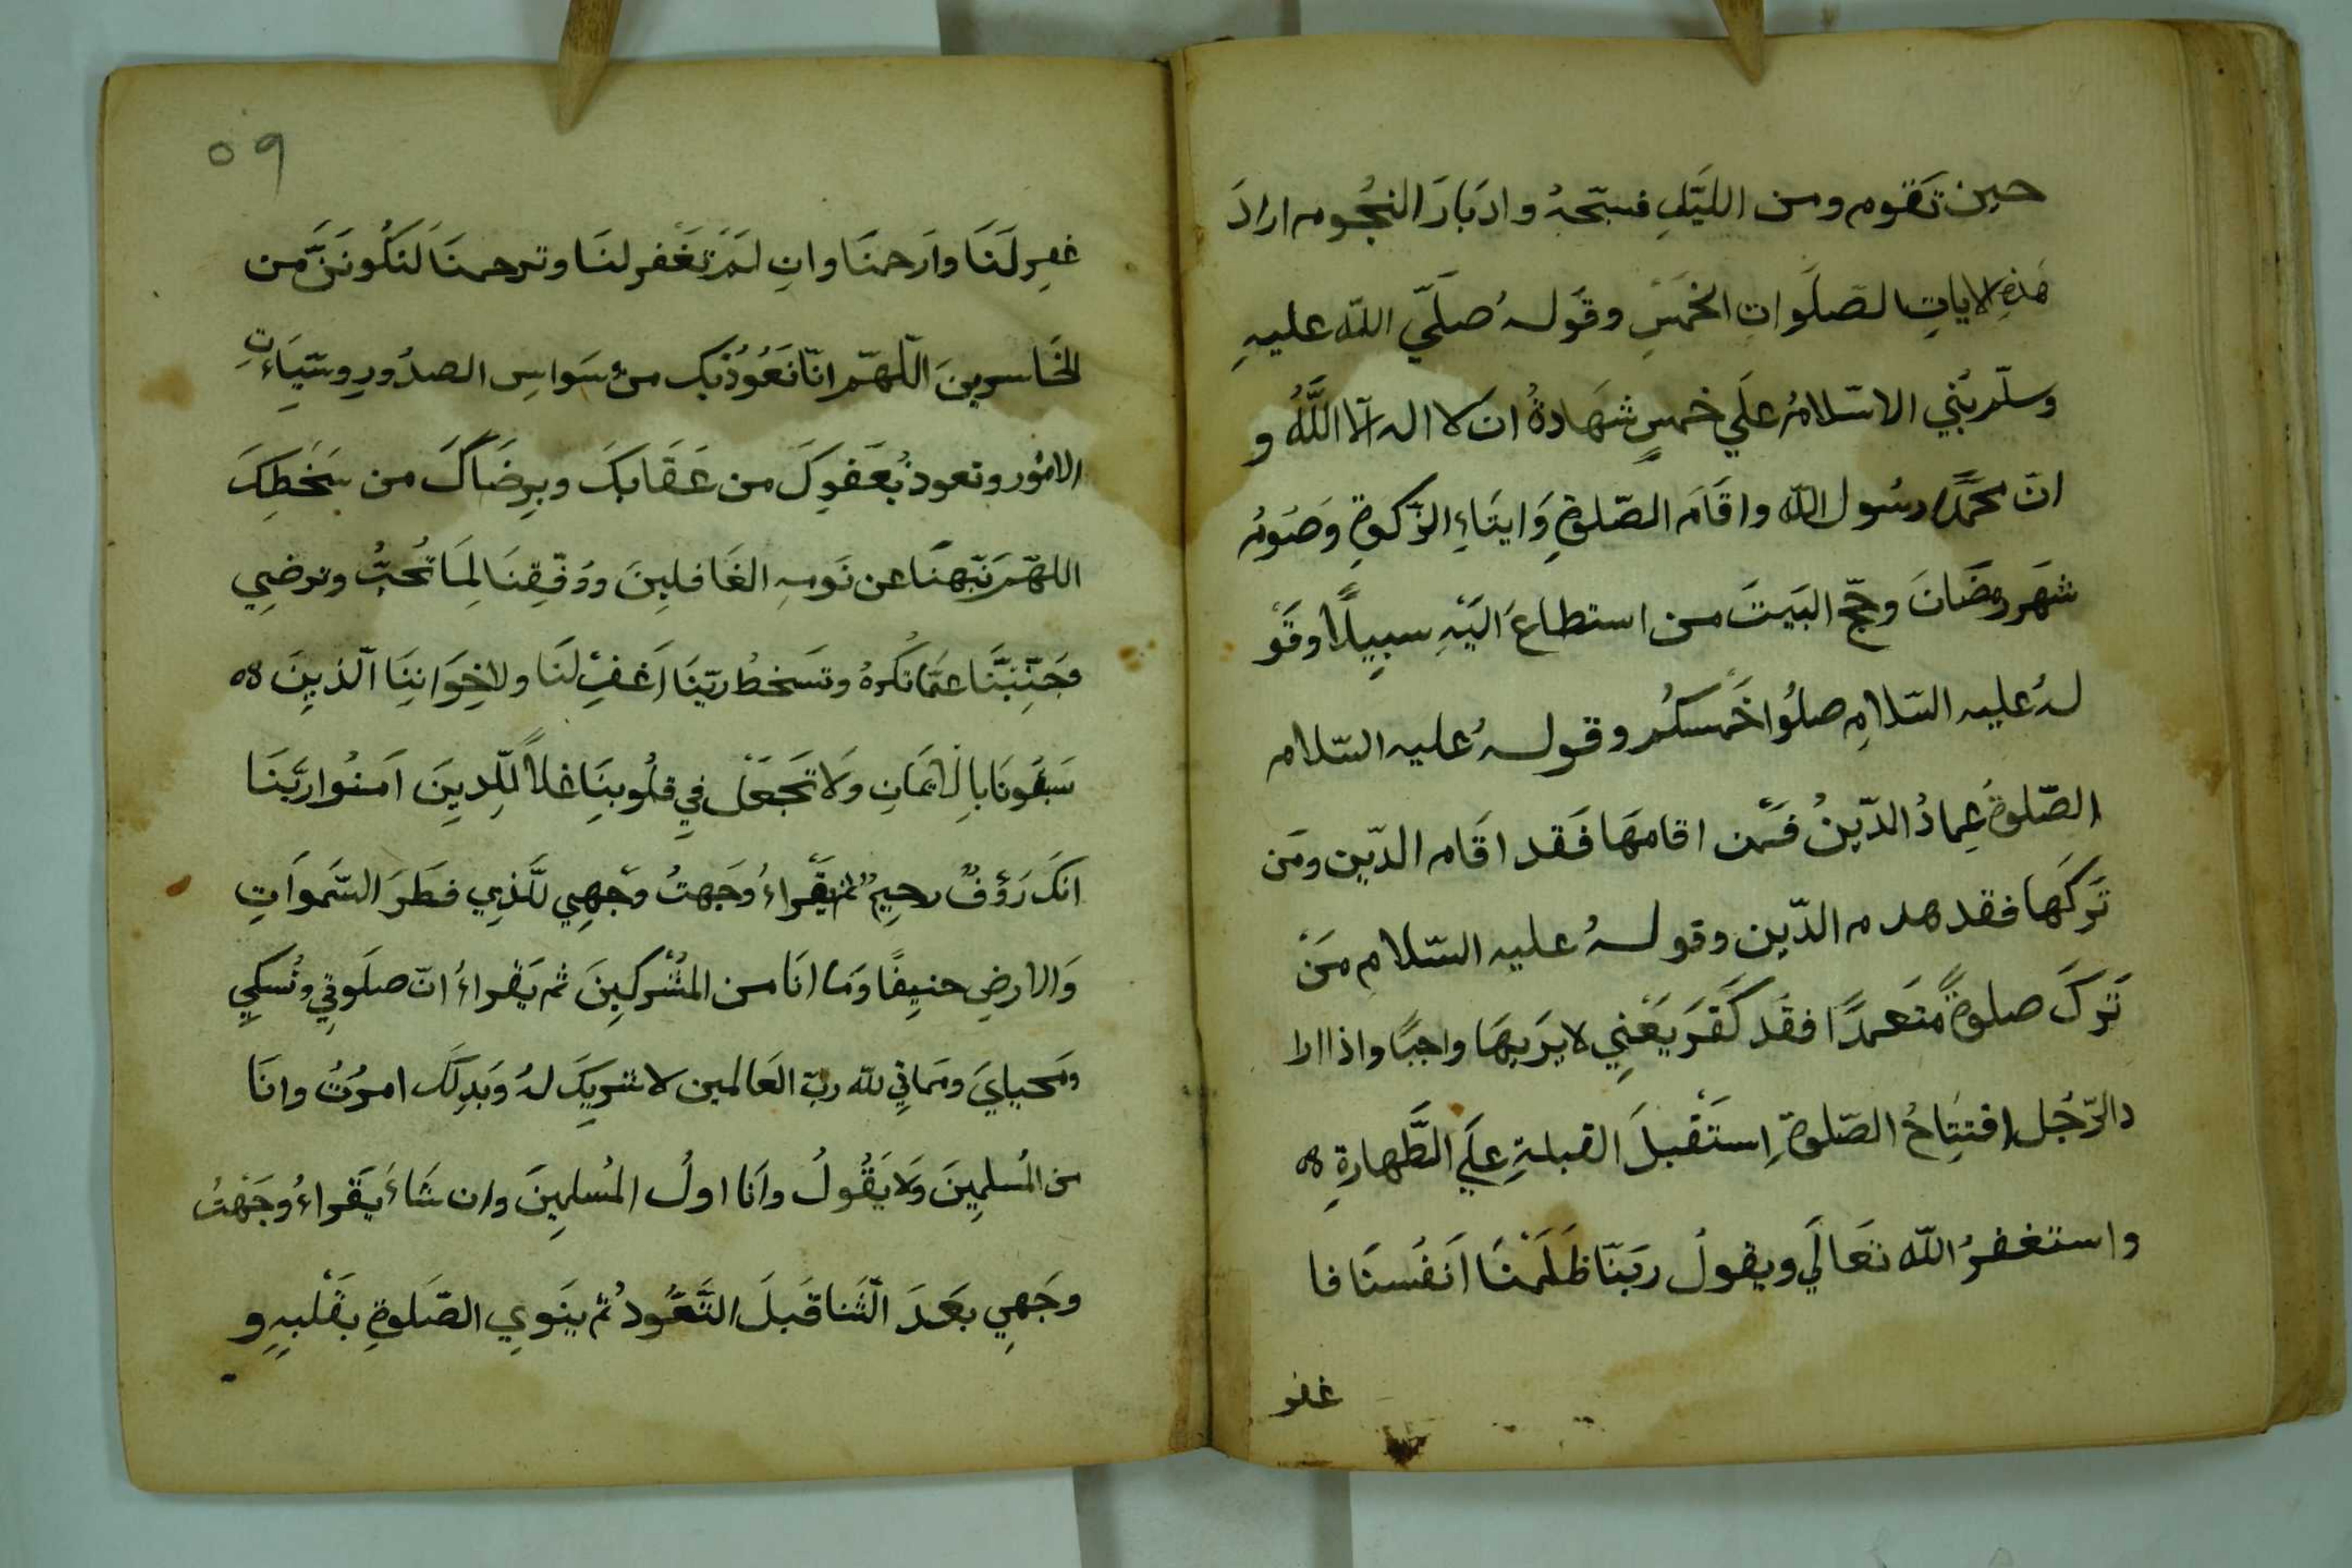 حين تَقوم ومن الليَلِ فسبّحهُ وادبَارَ النجُوم ارادَ
هَذِهِ الاياتِ الصَلَواتِ الخمَسِ وقَولهُ صلَّي اللّه عليهِ
وسلّم بُنِي الاسّلامُ علَي خمسٍ شهَادةُ ان لا اله الّا اللَّهُ و
انّ محمّدًا رسُول اللّه واقَامَ الصّلوةِ وَايتَاءِ الزّكوةِ وَصَومُ
شهَر رمضَانَ وحجّ البَيتَ من استطاعَ اليَهِ سبِيلًا وقَو
لهُ عليه السّلامِ صلُوا خَمسكُم وقولهُ عليه السّلام
الصّلوةُ عِمادُ الدّينُ فمَن اقامهَا فَقد اقَام الدّين ومَن
تَركَها فقد هدم الدّين وقولهُ عليه السّلامِ مَنْ
تَركَ صلوةً متَعمدًا فقَد كَفَرَ يَعَنِي لا يَريهَا واجبًا واذا ارا
د الرّجُل افتتِاحُ الصّلوةِ اِستَقبلَ القبلهِ علَي الطَّهارةِ ٥٥
واستغفرُ اللّه تعَالَي ويقولُ ربَنّا ظلَمَنَا اَنفُسنَا فا
غفر
٥٩
غفِر لَنَا واَرحمنَا وانِ لمَ تَغَفر لنَا وترحمنَا لَنَكُونَنَّ من
الخَاسرينَ اللّهمّ انّا نَعُوذُبكَ من وسَواسِ الصدُورِ وسَيّيَاءتِ
الامُور ونعوذُ بُعَفوِكَ من عَقَابكَ وبرِضَاكَ من سَخطِكَ
اللهمّ نَبّهنَا عن نَومهِ الغَافلِينَ ووَفّقِنَا لِمَا تُحبُّ وترضِي
وَجَنّبِنَّا عمّا تكُرهُ وتَسخطُ ربّنَا اَغفِر لنَا ولاخِوَاننِاَ الّذينَ ٥٥
سَبقُونَا بالِايمَانِ وَلا تَجعَل فيِ قلُوبنِاَ غلاً للّذِينَ اَمنُوا ربَّنَا
انكَ رَؤفٌ رحِيمٌ ثم يَقَراءُ وَجَهتُ وَجهِي للَّذِي فطَرَ السّموَاتِ
وَالارضِ حنيِفًا وَمَا انَا من المُشركِينَ ثم يَقراءُ انّ صلَوتِي ونُسكيِ
ومَحيايَ ومَماتِي للّه ربّ العَالمين لا شريِكَ لهُ وَبذِلَك امرُتُ وانَا
من المُسلمِينَ وَلا يَقُولُ واَنا اولُ المُسلمِينَ وان شَاءَ يَقراءُ وجَهْتُ
وجَهيِ بعَدَ الثّنا قَبلَ التَّعَّوذُ ثم ينَويِ الصّلوةِ بقَلبهِ و